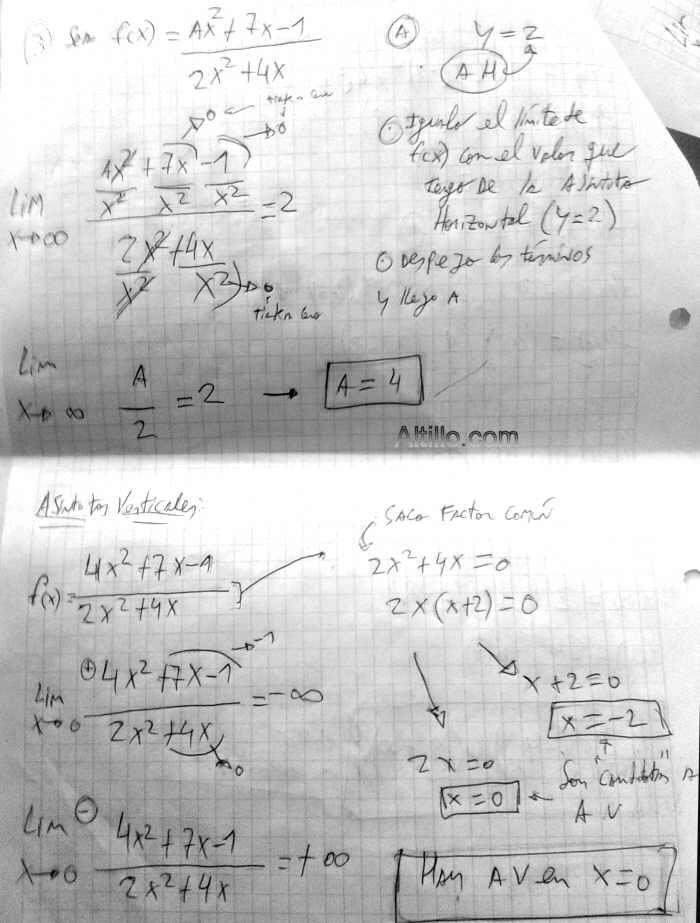 (3) Sea f(x) = Ax²+7x-1
2x²+4x
(A) y=2
AH
→0 ← tiende a cero
→0
Lim x→∞ Ax²/x² + 7x/x² - 1/x² = 2
2x²/x² + 4x/x²
→0
tiende a cero
Igualo el límite de
f(x) con el valor que
tengo De la Asíntota
Horizontal (y=2)
Despejo los términos
y llego A
Lim x→∞ A/2 = 2 → A = 4
Altillo.com
Asíntotas Verticales:
f(x) = 4x²+7x-1
2x²+4x
SACO FACTOR COMÚN
2x²+4x=0
2x(x+2)=0
x+2=0
x=-2
2x=0
x=0
Son "candidatos" A
A V
→-1
Lim x→0 ⊕ 4x²+7x-1 = -∞
2x²+4x
→0
Lim x→0 ⊖ 4x²+7x-1 = +∞
2x²+4x
Hay AV en x=0